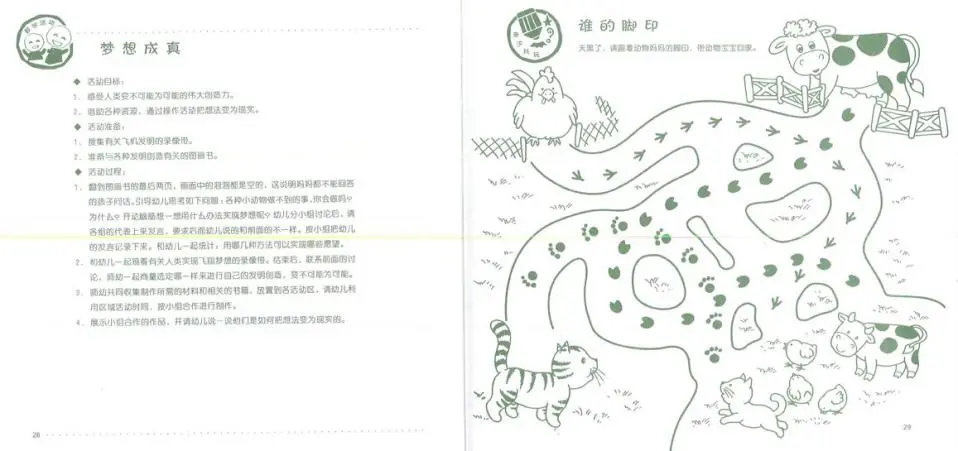 教学活动
梦想成真
◆ 活动目标：
1. 感受人类变不可能为可能的伟大创造力。
2. 借助各种资源，通过操作活动把想法变为现实。
◆ 活动准备：
1. 搜集有关飞机发明的录像带。
2. 准备与各种发明创造有关的图画书。
◆ 活动过程：
1. 翻到图画书的最后两页，画面中的泡泡都是空的，这说明妈妈都不能回答
的孩子问话。引导幼儿思考如下问题：各种小动物做不到的事，你会做吗？
为什么？开动脑筋想一想用什么办法实现梦想呢？幼儿分小组讨论后，请
各组的代表上来发言，要求后面幼儿说的和前面的不一样。按小组把幼儿
的发言记录下来。和幼儿一起统计：用哪几种方法可以实现哪些愿望。
2. 和幼儿一起观看有关人类实现飞翔梦想的录像带。结束后，联系前面的讨
论，师幼一起商量选定哪一样来进行自己的发明创造，变不可能为可能。
3. 师幼共同收集制作所需的材料和相关的书籍，放置到各活动区，请幼儿利
用区域活动时间，按小组合作进行制作。
4. 展示小组合作的作品，并请幼儿说一说他们是如何把想法变为现实的。
28
亲子共玩
谁的脚印
天黑了，请跟着动物妈妈的脚印，把动物宝宝送回家。
29